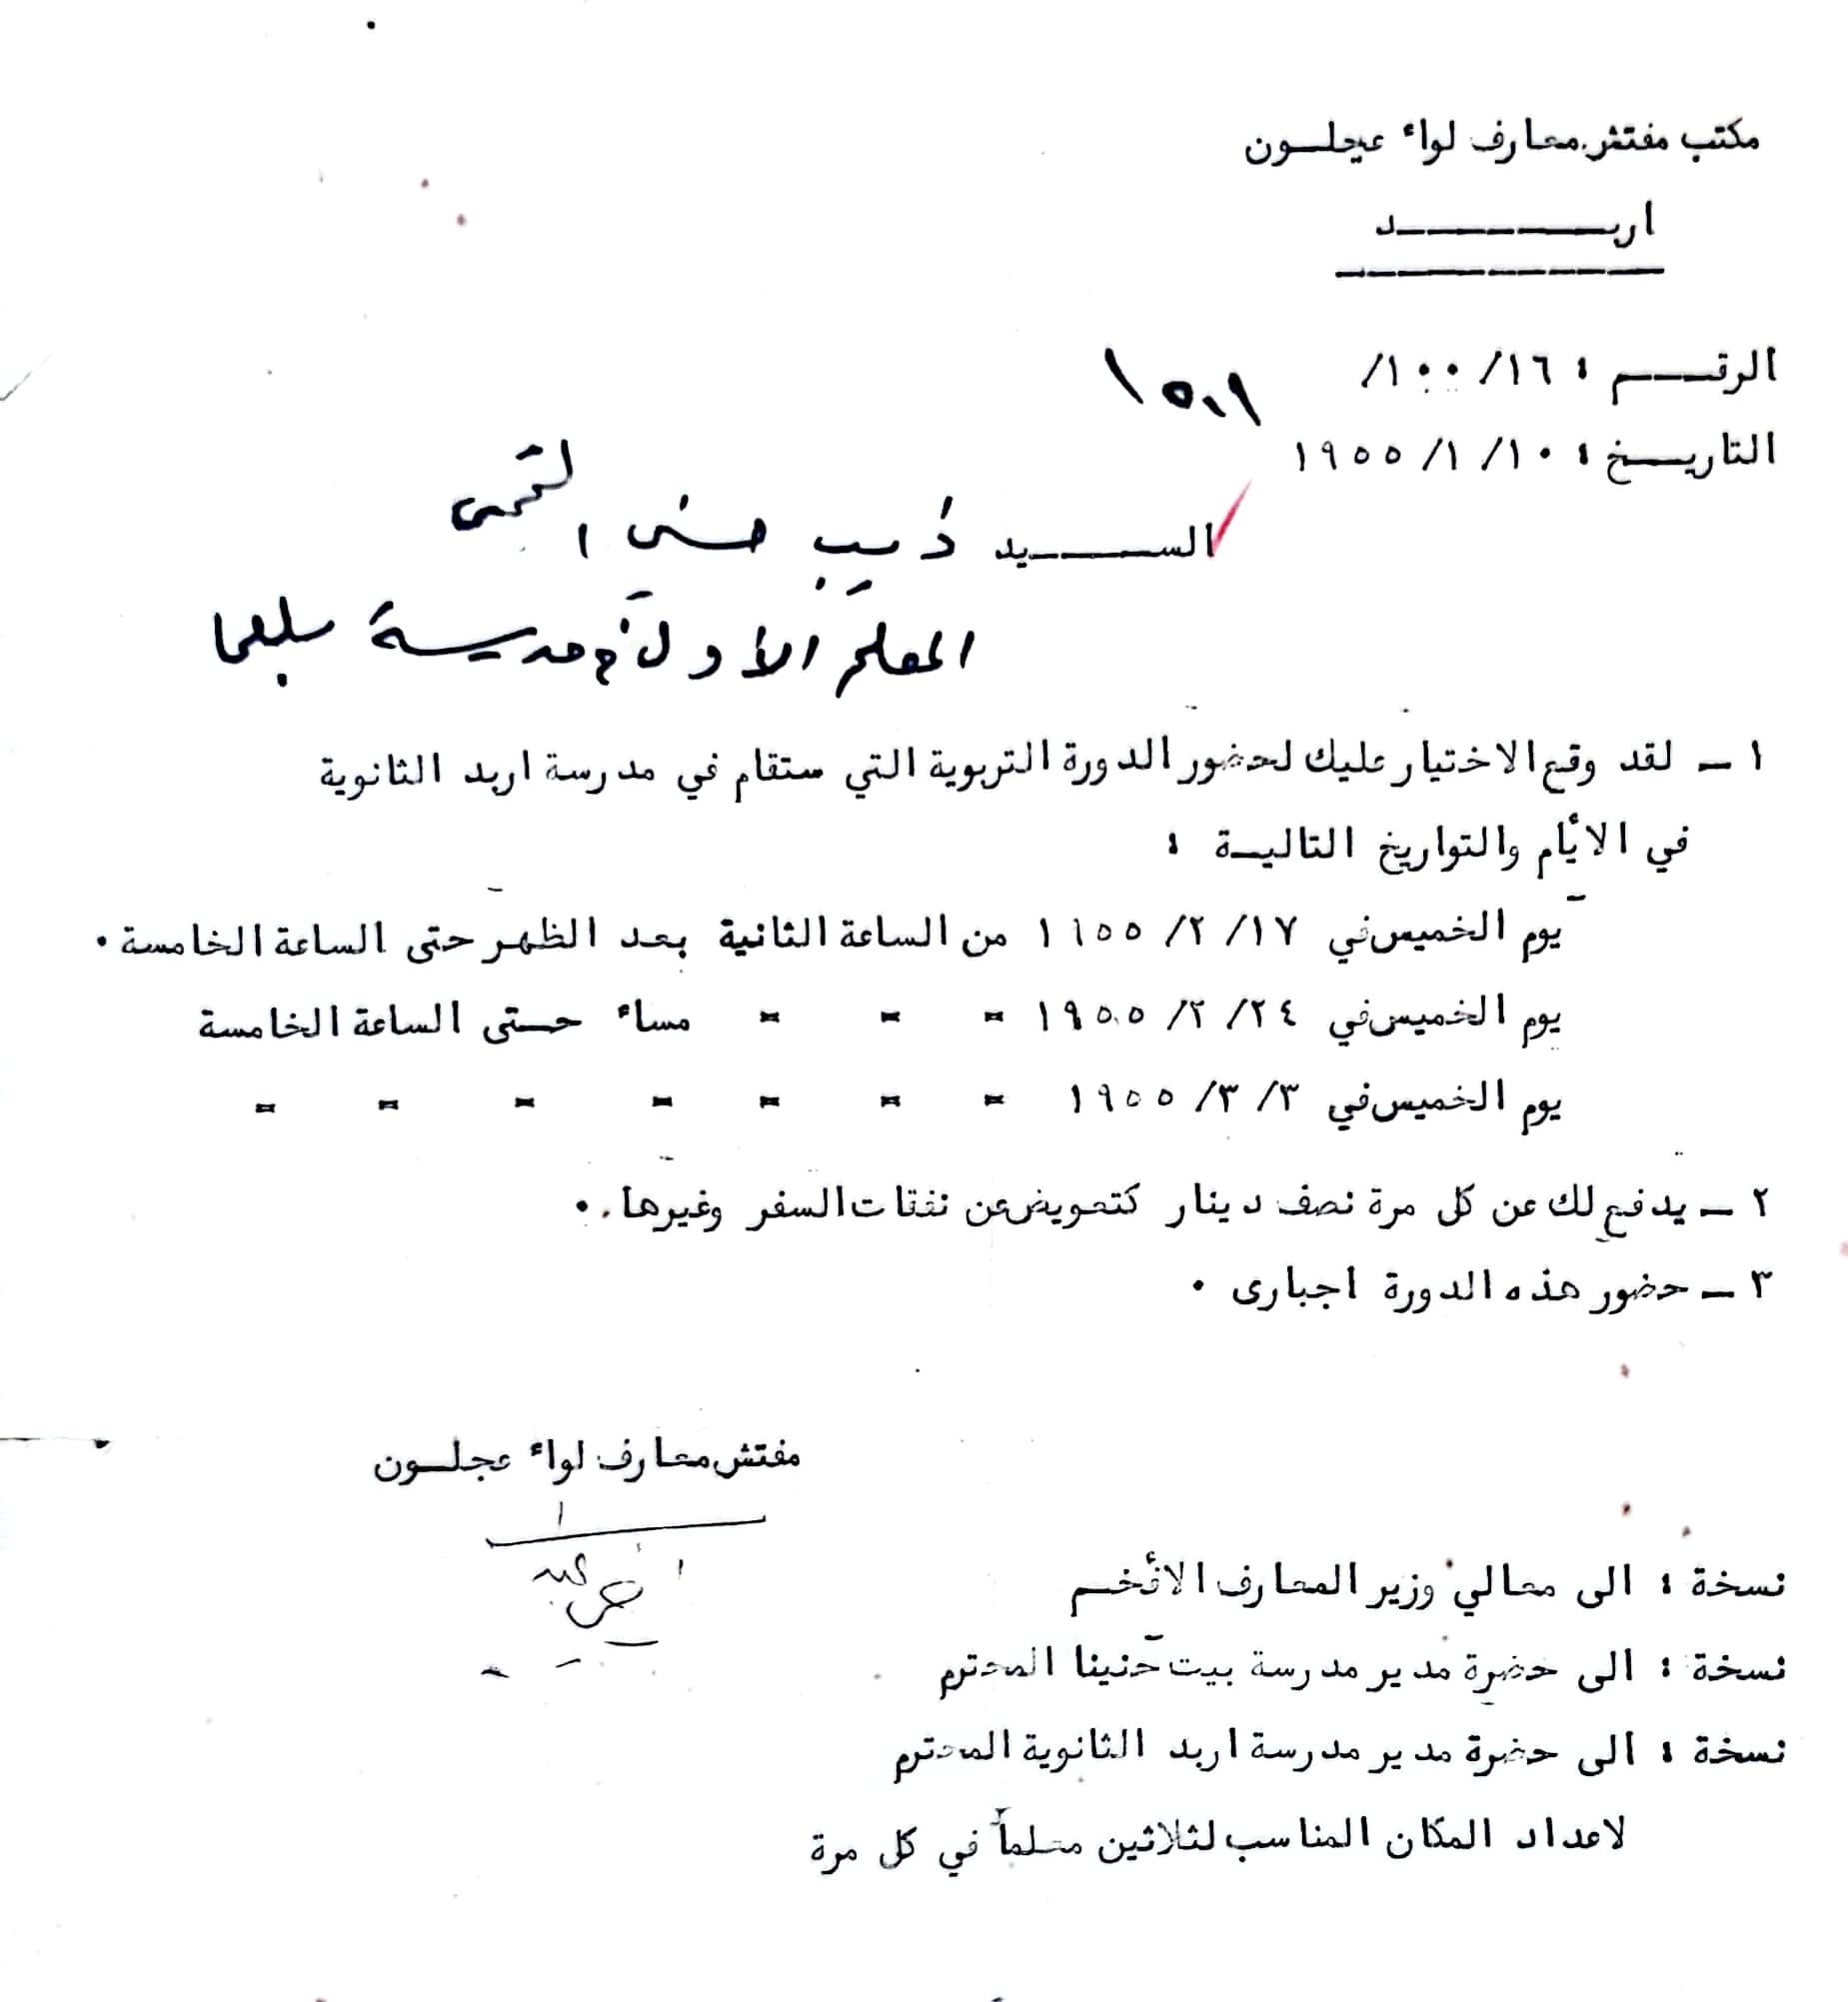 مكتب مفتش معارف لواء عجلــون
اربــــــــد
الرقـــم : ١٦/ ١٠٠/
التاريــخ : ١٠/ ١/ ١٩٥٥
الســـــيد ذيب حسني
المعلم الأول في مدرسة بلعما
١ ــ لقد وقع الاختيار عليك لحضور الدورة التربوية التي ستقام في مدرسة اربد الثانوية
في الأيام والتواريخ التاليــة :
يوم الخميس في ١٧/ ٢/ ١٩٥٥ من الساعة الثانية بعد الظهر حتى الساعة الخامسة .
يوم الخميس في ٢٤/ ٢/ ١٩٥٥ = = = مساء حــتى الساعة الخامسة
يوم الخميس في ٣/ ٣/ ١٩٥٥ = = = = = = =
٢ ــ يدفع لك عن كل مرة نصف دينار كتعويض عن نفقات السفر وغيرها .
٣ ــ حضور هذه الدورة اجبارى .
مفتش معارف لواء عجلــون
نسخة : الى معالي وزير المعارف الأفخــم
نسخة : الى حضرة مدير مدرسة بيت حنينا المحترم
نسخة : الى حضرة مدير مدرسة اربد الثانوية المحترم
لاعداد المكان المناسب لثلاثين معلماً في كل مرة